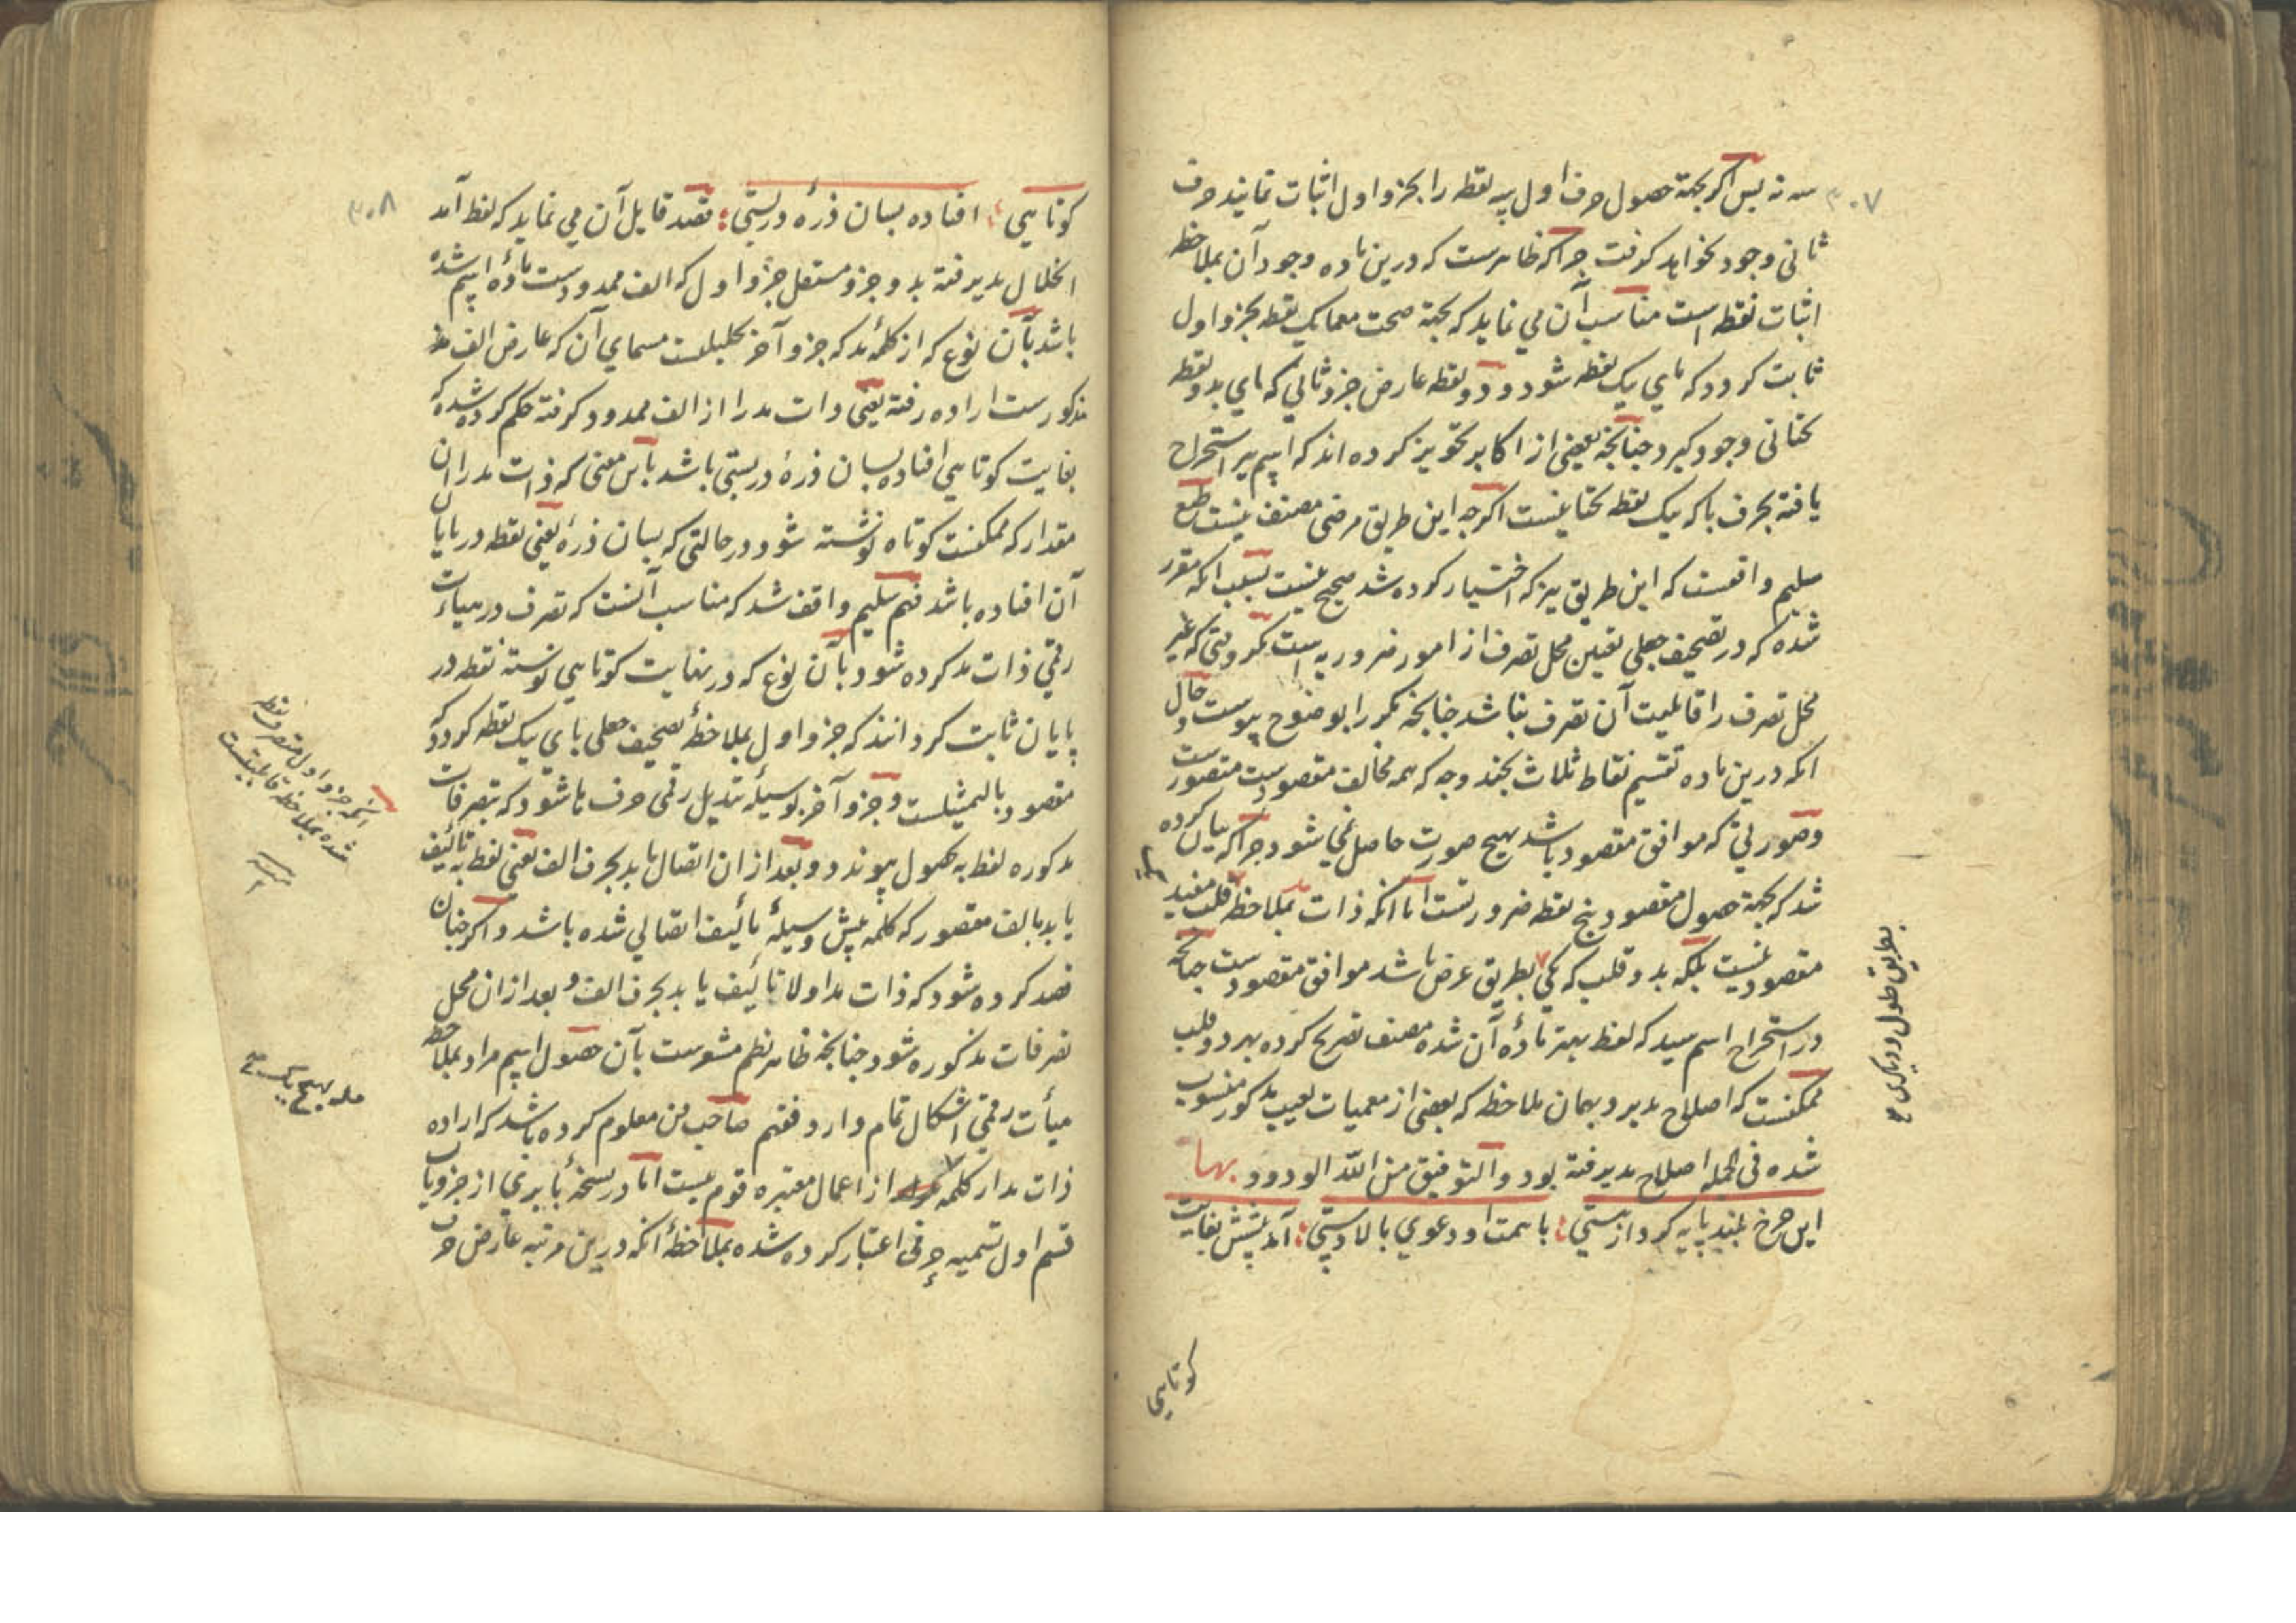 ۳۰۷
سه نه پس اگر بجهة حصول حرف اول سه نقطه را بجزو اول اثبات نمایند حرف
ثانی وجود نخواهد گرفت چراکه ظاهرست که درین ماده وجود آن بملاحظه
اثبات نقطه است مناسب آن می نماید که بجهة صحت معما یک نقطه بجزو اول
ثابت گردد که بای یک نقطه شود و دو نقطه عارض جزو ثانی که یای بدو نقطه
تحتانی وجود گیرد چنانچه بعضی از اکابر تجویز کرده اند که اسم پیر استخراج
یافته بحرف با که یک نقطه تحتانیست اگرچه این طریق مرضی مصنف نیست طبع
سلیم واقفست که این طریق نیز که اختیار کرده شد صحیح نیست بسبب آنکه مقرر
شده که در تصحیف جعلی تعیین محل تصرف از امور ضروریه است مگر وقتی که غیر
محل تصرف را قابلیت آن تصرف نباشد چنانچه مکرر بوضوح پیوست و حال
آنکه درین ماده تقسیم نقاط ثلاث بچند وجه که همه مخالف مقصودست متصورست
وصورتی که موافق مقصود باشد بهیچ صورت حاصل نمی شود چراکه بیان کرده
شد که بجهة حصول مقصود پنج نقطه ضرورتست اما آنکه ذات بملاحظه قلب مفید
مقصود نیست بلکه بدو قلب که یکی بطریق عرض باشد موافق مقصودست چنانچه
در استخراج اسم سید که لفظ بهتر ماده آن شده مصنف تصریح کرده بهر دو قلب
ممکنست که اصلاح پذیرد بهمان ملاحظه که بعضی از معمیات بعیب مذکور منسوب
شده فی الجمله اصلاح پذیرفته بود والتوفیق من الله الودود بها
این چرخ بلند پایه کرد از مستی ؛ با همت او دعوی بالادستی ؛ آمد پیشش بغایت
کوتاهی
بطریق طول و دیگری
۳۰۸
کوتاهی ؛ افتاده بسان ذرهٔ در پستی ؛ قصد قایل آن می نماید که لفظ آمد
انحلال پذیرفته بدو جزو مستقل جزو اول که الف ممدودست مادهٔ اسم شده
باشد بآن نوع که از کلمهٔ مد که جزو آخر تحلیلست مسمای آن که عارض الف
مذکورست اراده رفته یعنی ذات مد را از الف ممدود گرفته حکم کرده شده که
بغایت کوتاهی افتاده بسان ذرهٔ در پستی باشد باین معنی که ذات مد را آن
مقدار که ممکنست کوتاه نوشته شود در حالتی که بسان ذرهٔ یعنی نقطه در پایان
آن افتاده باشد فهم سلیم واقف شد که مناسب آنست که تصرف در هیأت
رقمی ذات مد کرده شود بآن نوع که در نهایت کوتاهی نوشته نقطه در
پایان ثابت گردانند که جزو اول بملاحظهٔ تصحیف جعلی بای یک نقطه گردد که
مقصود بالتمثیلست و جزو آخر بوسیلهٔ تبدیل رقمی حرف با شود که بتصرفات
مذکوره لفظ به بحصول پیوندد و بعد از ان اتصال یابد بحرف الف یعنی لفظ به تألیف
یابد بالف مقصور که کلمه پیش وسیلهٔ تألیف اتصالی شده باشد و اگر چنان
قصد کرده شود که ذات مد اولا تألیف یابد بحرف الف و بعد از ان محل
تصرفات مذکوره شود چنانچه ظاهر نظم مشعرست بآن حصول اسم مراد بملاحظه
هیأت رقمی اشکال تمام دارد فهم صاحب من معلوم کرده باشد که اراده
ذات مد از کلمه از اعمال معتبره قوم نیست اما در نسخهٔ بابری از جزویات
قسم اول تسمیه حرفی اعتبار کرده شده بملاحظهٔ آنکه درین مرتبه عارض حرف
آنکه جزو اول متصرف نقطه
شده بملاحظه قابلیتست